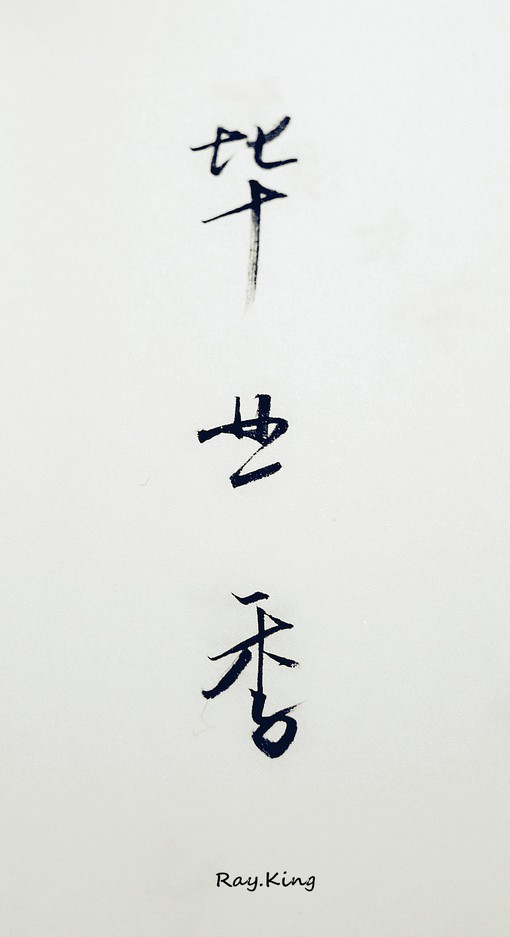 毕业季
Ray.King